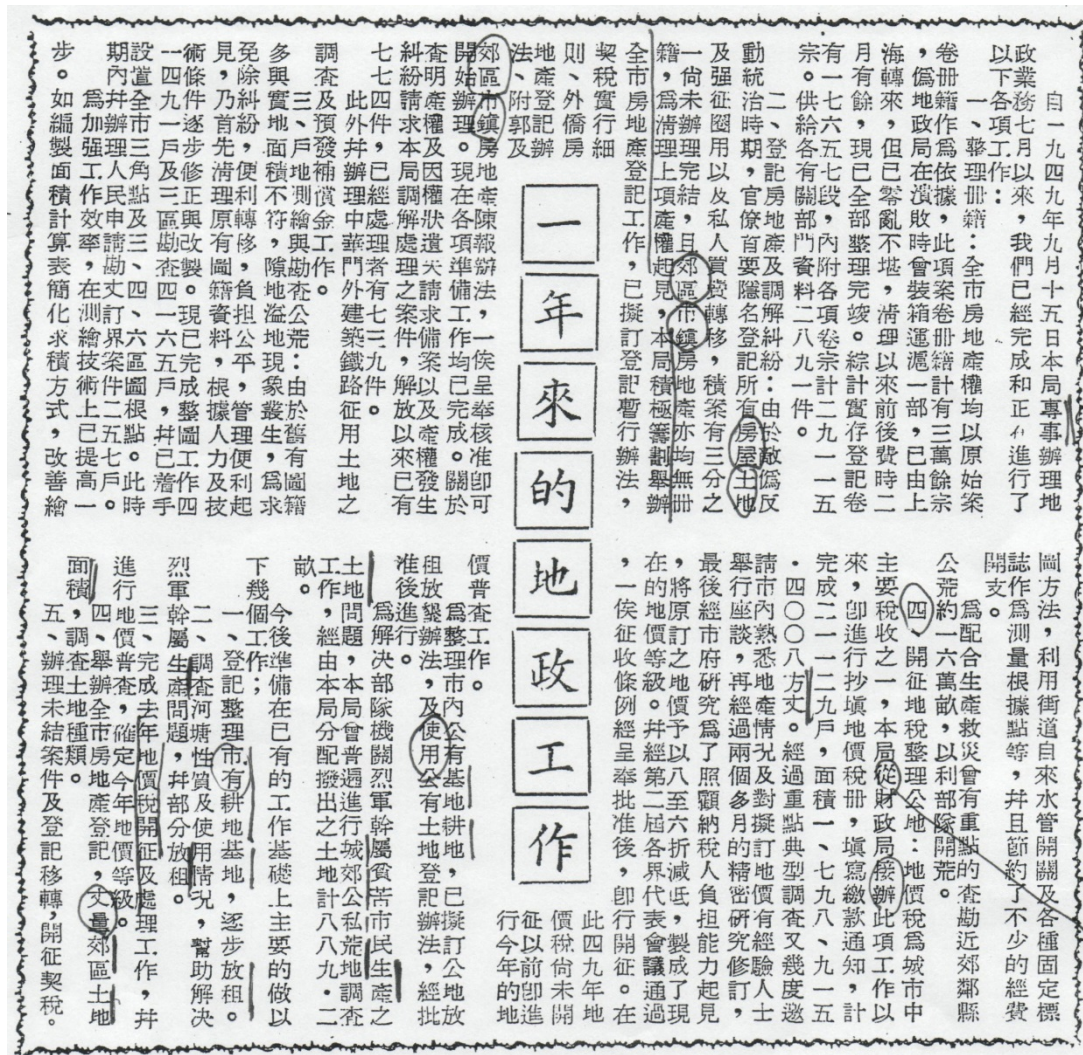 一年來的地政工作
自一九四九年九月十五日本局專事辦理地
政業務七月以來,我們已經完成和正在進行了
以下各項工作:
一、整理册籍:全市房地產權均以原始案
卷册籍作爲依據,此項案卷册籍計有三萬餘宗
,僞地政局在潰敗時曾裝箱運滬一部,已由上
海轉來,但已零亂不堪,清理以來前後費時二
月有餘,現已全部整理完竣。綜計實存登記卷
有一七六五七段,內附各項卷宗計二九一一五
宗。供給各有關部門資料二八九一件。
二、登記房地產及調解糾紛:由於敵僞反
動統治時期,官僚首要隱名登記所有房屋土地
及强征圈用以及私人買賣轉移,積案有三分之
一尚未辦理完結,且郊區市鎮房地產亦均無册
籍,爲清理上項產權起見,本局積極籌劃舉辦
全市房地產登記工作,已擬訂登記暫行辦法,
契稅實行細
則、外僑房
地產登記辦
法、附郭及
郊區市鎮房地產陳報辦法,一俟呈奉核准卽可
開始辦理。現在各項準備工作均已完成。關於
查明產權及因權狀遺失請求備案以及產權發生
糾紛請求本局調解處理之案件,解放以來已有
七七四件,已經處理者有七三九件。
此外幷辦理中華門外建築鐵路征用土地之
調查及預發補償金工作。
三、戶地測繪與勘查公荒:由於舊有圖籍
多與實地面積不符,隙地溢地現象叢生,爲求
免除糾紛,便利轉移,負担公平,管理便利起
見,乃首先清理原有圖籍資料,根據人力及技
術條件逐步修正與改製。現已完成整圖工作四
一四九一戶及三區勘查四一六五戶,幷已着手
設置全市三角點及三、四、六區圖根點。此時
期內幷辦理人民申請勘丈訂界案件二五七戶。
爲加强工作效率,在測繪技術上已提高一
步。如編製面積計算表簡化求積方式,改善繪
圖方法,利用街道自來水管開關及各種固定標
誌作爲測量根據點等,幷且節約了不少的經費
開支。
爲配合生產救災曾有重點的查勘近郊鄰縣
公荒約一六萬畝,以利部隊開荒。
四、開征地稅整理公地:地價稅爲城市中
主要稅收之一,本局從財政局接辦此項工作以
來,卽進行抄塡地價稅册,塡寫繳款通知,計
完成二一一二九戶,面積一、七九八、九一五
・四〇〇八方丈。經過重點典型調查又幾度邀
請市內熟悉地產情况及對擬訂地價有經驗人士
舉行座談,再經過兩個多月的精密硏究修訂,
最後經市府硏究爲了照顧納稅人負担能力起見
,將原訂之地價予以八至六折減低,製成了現
在的地價等級。幷經第二屆各界代表會議通過
,一俟征收條例經呈奉批准後,卽行開征。在
此四九年地
價稅尙未開
征以前卽進
行今年的地
價普查工作。
爲整理市內公有基地耕地,已擬訂公地放
租放墾辦法,及使用公有土地登記辦法,經批
准後進行。
爲解决部隊機關烈軍幹屬貧苦市民生產之
土地問題,本局曾普遍進行城郊公私荒地調查
工作,經由本局分配撥出之土地計八八九・二
畝。
今後準備在已有的工作基礎上主要的做以
下幾個工作;
一、登記整理市有耕地基地,逐步放租。
二、調查河塘性質及使用情况,幫助解决
烈軍幹屬生產問題,幷部分放租。
三、完成去年地價稅開征及處理工作,幷
進行地價普查,確定今年地價等級。
四、舉辦全市房地產登記,丈量郊區土地
面積,調查土地種類。
五、辦理未結案件及登記移轉,開征契稅。